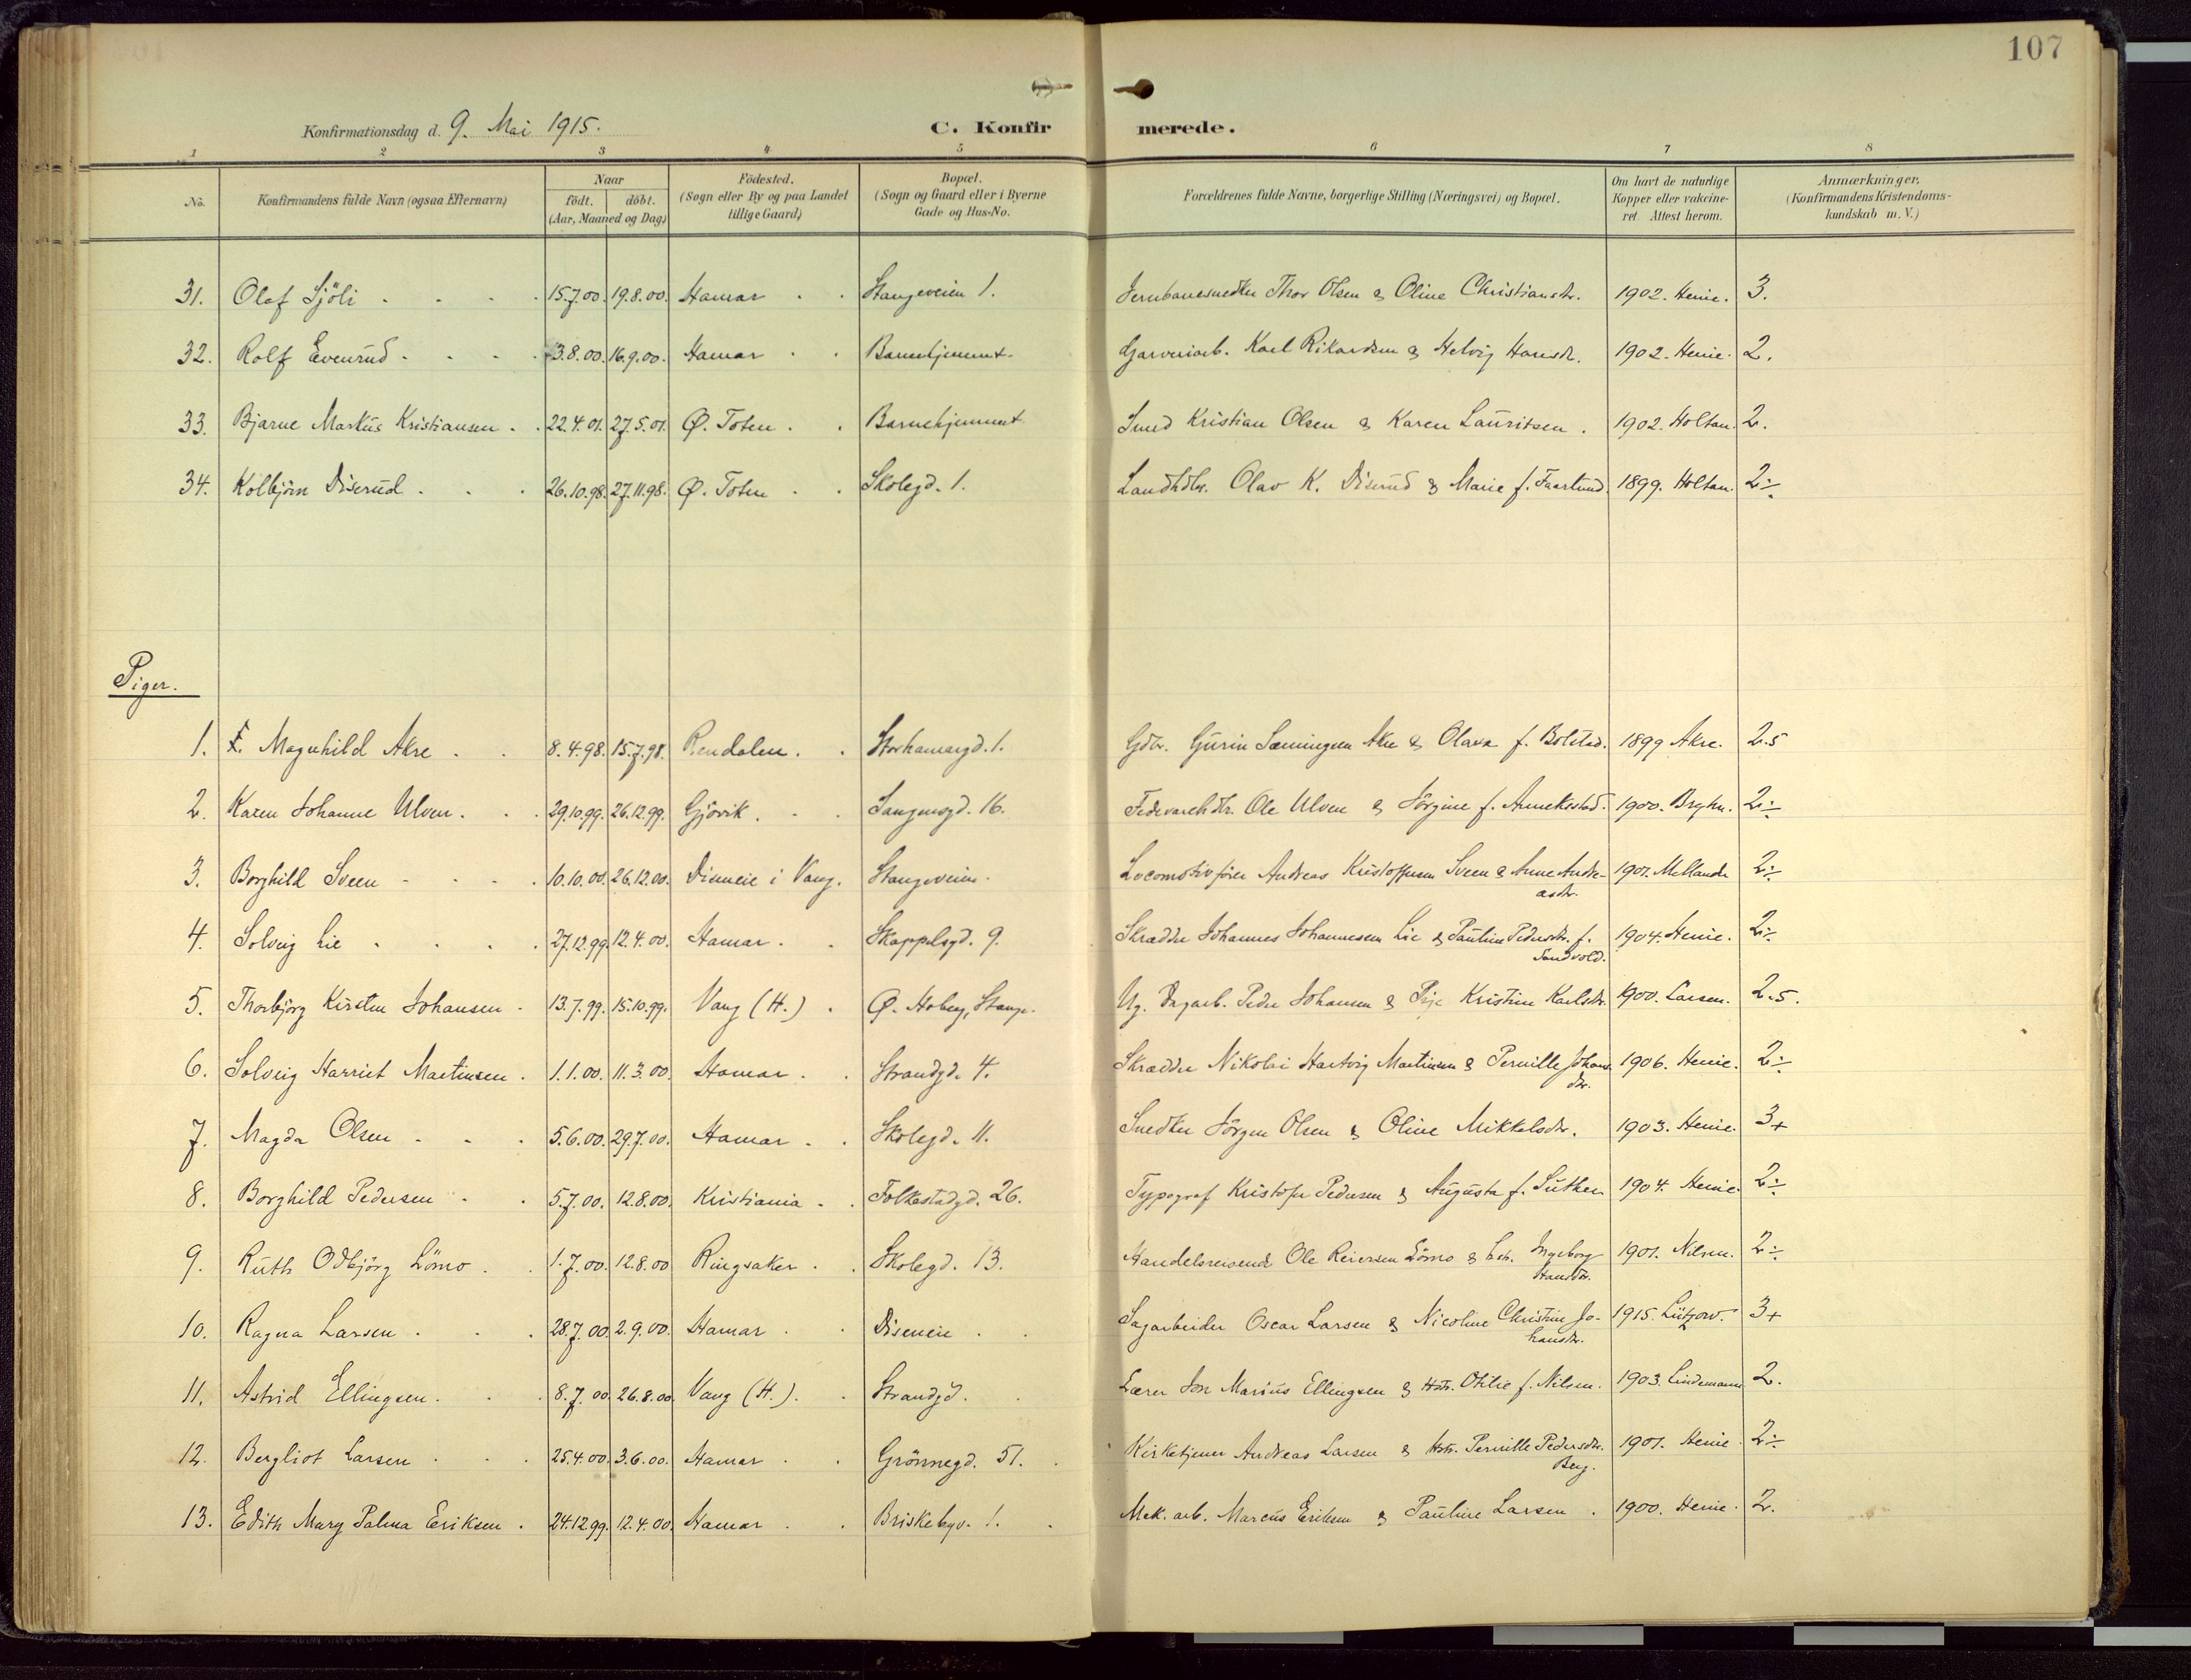 107
Konfirmationsdag d. 9. Mai 1915. C. Konfir merede.
1 2 3 4 5 6 7 8
No. Konfirmandens fulde Navn (ogsaa Efternavn) Naar födt. döbt. (Aar, Maaned og Dag.) Födested. (Sogn eller By og paa Landet tillige Gaard) Bopæl. (Sogn og Gaard eller i Byerne Gade og Hus-No. Forældrenes fulde Navne, borgerlige Stilling (Næringsvei) og Bopæl. Om havt de naturlige Kopper eller vakcineret. Attest herom. Anmærkninger. (Konfirmandens Kristendomskundskab m. V.)
31. Olaf Sjöli 15.7.00. 19.8.00. Hamar Stangeveien 1. Jernbanesnedker Thor Olsen & Oline Christiansdr. 1902. Henie. 3.
32. Rolf Evenrud 3.8.00. 16.9.00. Hamar Barnehjemmet Garveriarb. Karl Rikardsen & Helvig Hansdr. 1902. Henie. 2.
33. Bjarne Markus Kristiansen 22.4.01. 27.5.01. Ø. Toten Barnehjemmet Smed Kristian Olsen & Karen Lauritsen. 1902. Holtan. 2.
34. Kolbjörn Diserud 26.10.98. 27.11.98. Ø. Toten Skolegd. 1. Landhdlr. Olav K. Diserud & Marie f. Faarlund. 1899. Holtan. 2÷
Piger.
1. Magnhild Akre 8.4.98. 15.7.98. Rendalen. Storhamargd. 1. Gdbr. Gurin Sæmingsen Akre & Olava f. Bolstad. 1899 Akre. 2.5
2. Karen Johanne Ulven. 29.10.99. 26.12.99. Gjövik. Vangensgd. 16. Fedevarehdlr. Ole Ulven & Jörgine f. Annekstad. 1900. Bryhn. 2÷
3. Borghild Sveen 10.10.00. 26.12.00. Diseneie i Vang. Stangeveien. Locomotivförer Andreas Kristoffersen Sveen & Anne Andre-
asdr. 1901. Mellande 2÷
4. Solveig Lie 27.12.99. 12.4.00. Hamar. Skappelsgd. 9. Skrædder Johannes Johannesen Lie & Pauline Pedersdr. f.
Sandvold. 1904. Henie. 2÷
5. Thorbjörg Kirsten Johansen 13.7.99. 15.10.99. Vang (H.) Ø. Hoberg, Stange. Ug. Dagarb. Peder Johansen & Pige Kristine Karlsdr. 1900. Larsen. 2.5.
6. Solveig Harriet Martinsen. 1.1.00. 11.3.00. Hamar. Strandgd. 4. Skrædder Nikolai Hartvig Martinsen & Pernille Johans
dr. 1906. Henie. 2÷
7. Magda Olsen 5.6.00. 29.7.00. Hamar. Skolegd. 11. Snedker Jörgen Olsen & Oline Mikkelsdr. 1903. Henie. 3+
8. Borghild Pedersen 5.7.00. 12.8.00. Kristiania. Folkestadgd. 26. Typograf Kristofer Pedersen & Augusta f. Suther. 1904. Henie. 2÷
9. Ruth Odbjörg Lömo. 1.7.00. 12.8.00 Ringsaker. Skolegd. 13. Handelsreisende Ole Reiersen Lömo & Hst. Ingeborg
Hansdr. 1901. Nilsen. 2÷
10. Ragna Larsen. 28.7.00. 2.9.00. Hamar Diseneie Sagarbeider Oscar Larsen & Nicoline Christine Jo-
hansdr. 1915. Lützow. 3+
11. Astrid Ellingsen. 8.7.00. 26.8.00. Vang (H.). Strandgd. Lærer Jon Marius Ellingsen & Hstr. Otilie f. Nilsen. 1903. Lindemann 2.
12. Bergliot Larsen 25.4.00. 3.6.00. Hamar Grönnegd. 51. Kirketjener Andreas Larsen & Hstr. Pernille Pedersdr.
Berg. 1901. Henie. 2÷
13. Edith Mary Palma Eriksen. 24.12.99. 12.4.00. Hamar Briskebyv. 1. Mek. arb. Marcus Eriksen & Pauline Larsen. 1900. Henie. 2.